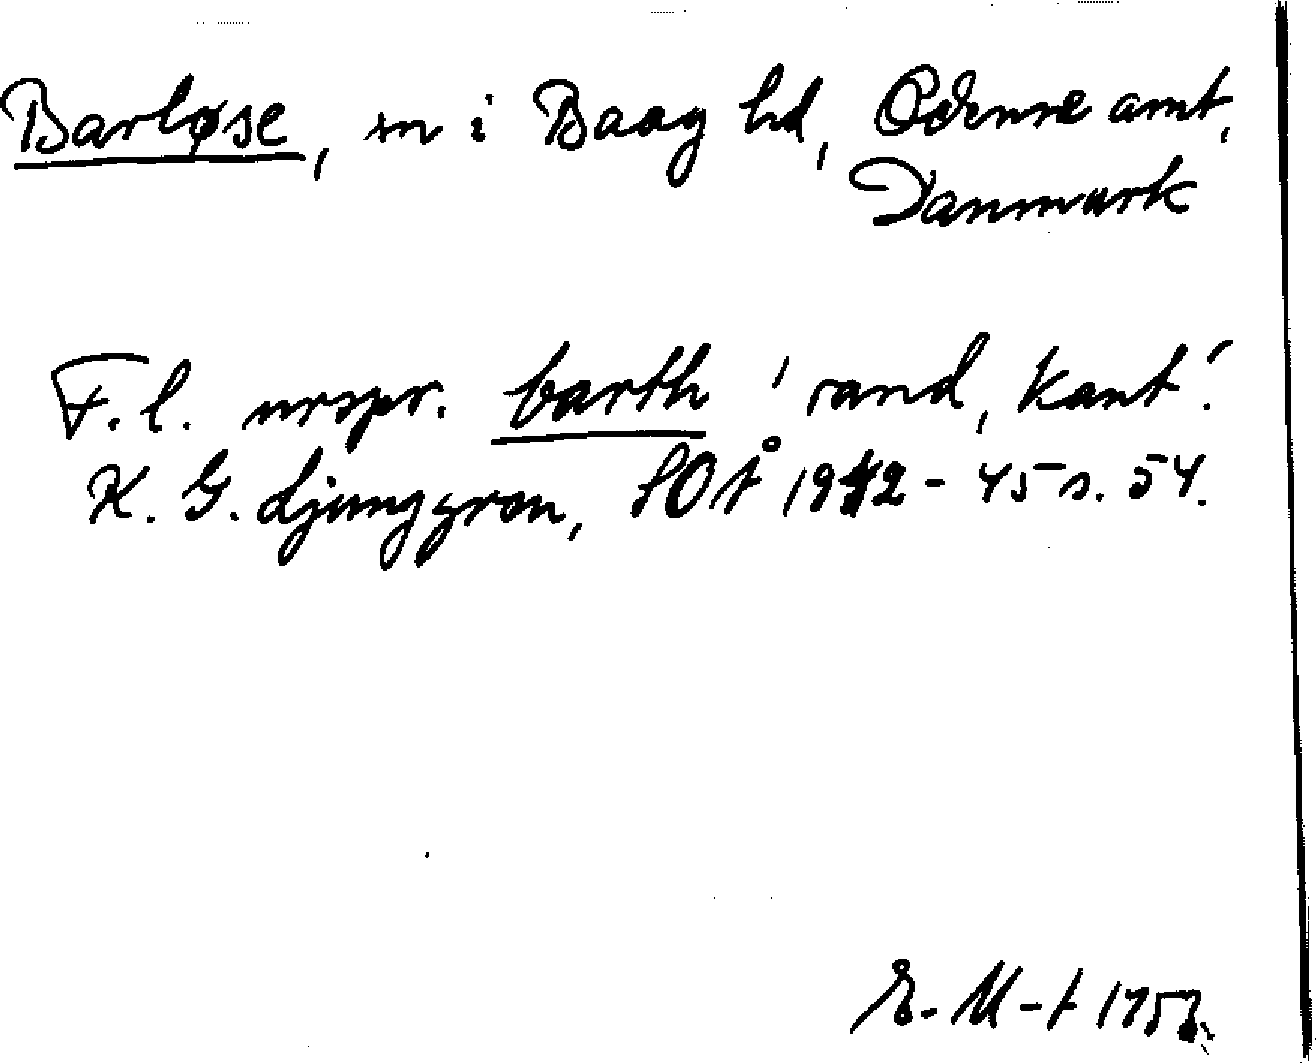 Barløse, sn i Baag hd, Odense amt,
Danmark
F.l. urspr. barth 'rand, kant'.
K. G. Ljunggren, SOÅ 1942-45 s. 54.
E. M-t